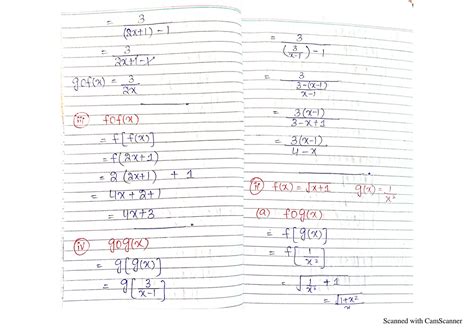 = 3/((2x+1) - 1)
= 3/(2x+1-1)
gof(x) = 3/2x
iii fof(x)
= f[f(x)]
= f(2x+1)
= 2(2x+1) + 1
= 4x+2+1
= 4x+3
iv gog(x)
= g[g(x)]
= g[3/(x-1)]
= 3/((3/(x-1)) - 1)
= 3/((3-(x-1))/(x-1))
= 3(x-1)/(3-x+1)
= 3(x-1)/(4-x)
f(x) = √(x+1) g(x) = 1/x²
(a) fog(x)
= f[g(x)]
= f[1/x²]
= √(1/x² + 1)
= √(1+x²)/x
Scanned with CamScanner